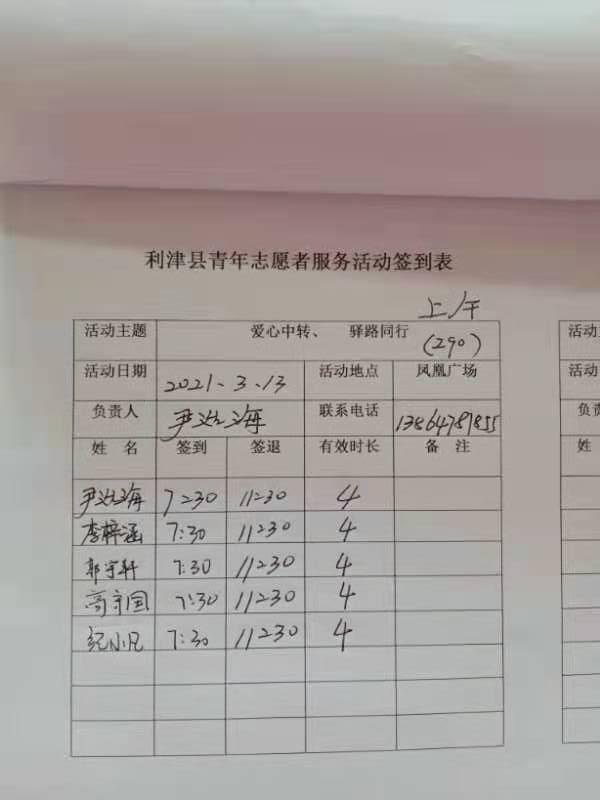 利津县青年志愿者服务活动签到表
上午
活动主题 爱心中转、 驿路同行 (290)
活动日期 2021.3.13 活动地点 凤凰广场
负责人 尹 海 联系电话 13864787855
姓 名 签到 签退 有效时长 备 注
尹 海 7:30 11:30 4
李梓涵 7:30 11:30 4
郭宇轩 7:30 11:30 4
高守国 7:30 11:30 4
纪小凡 7:30 11:30 4
活动
负责
姓